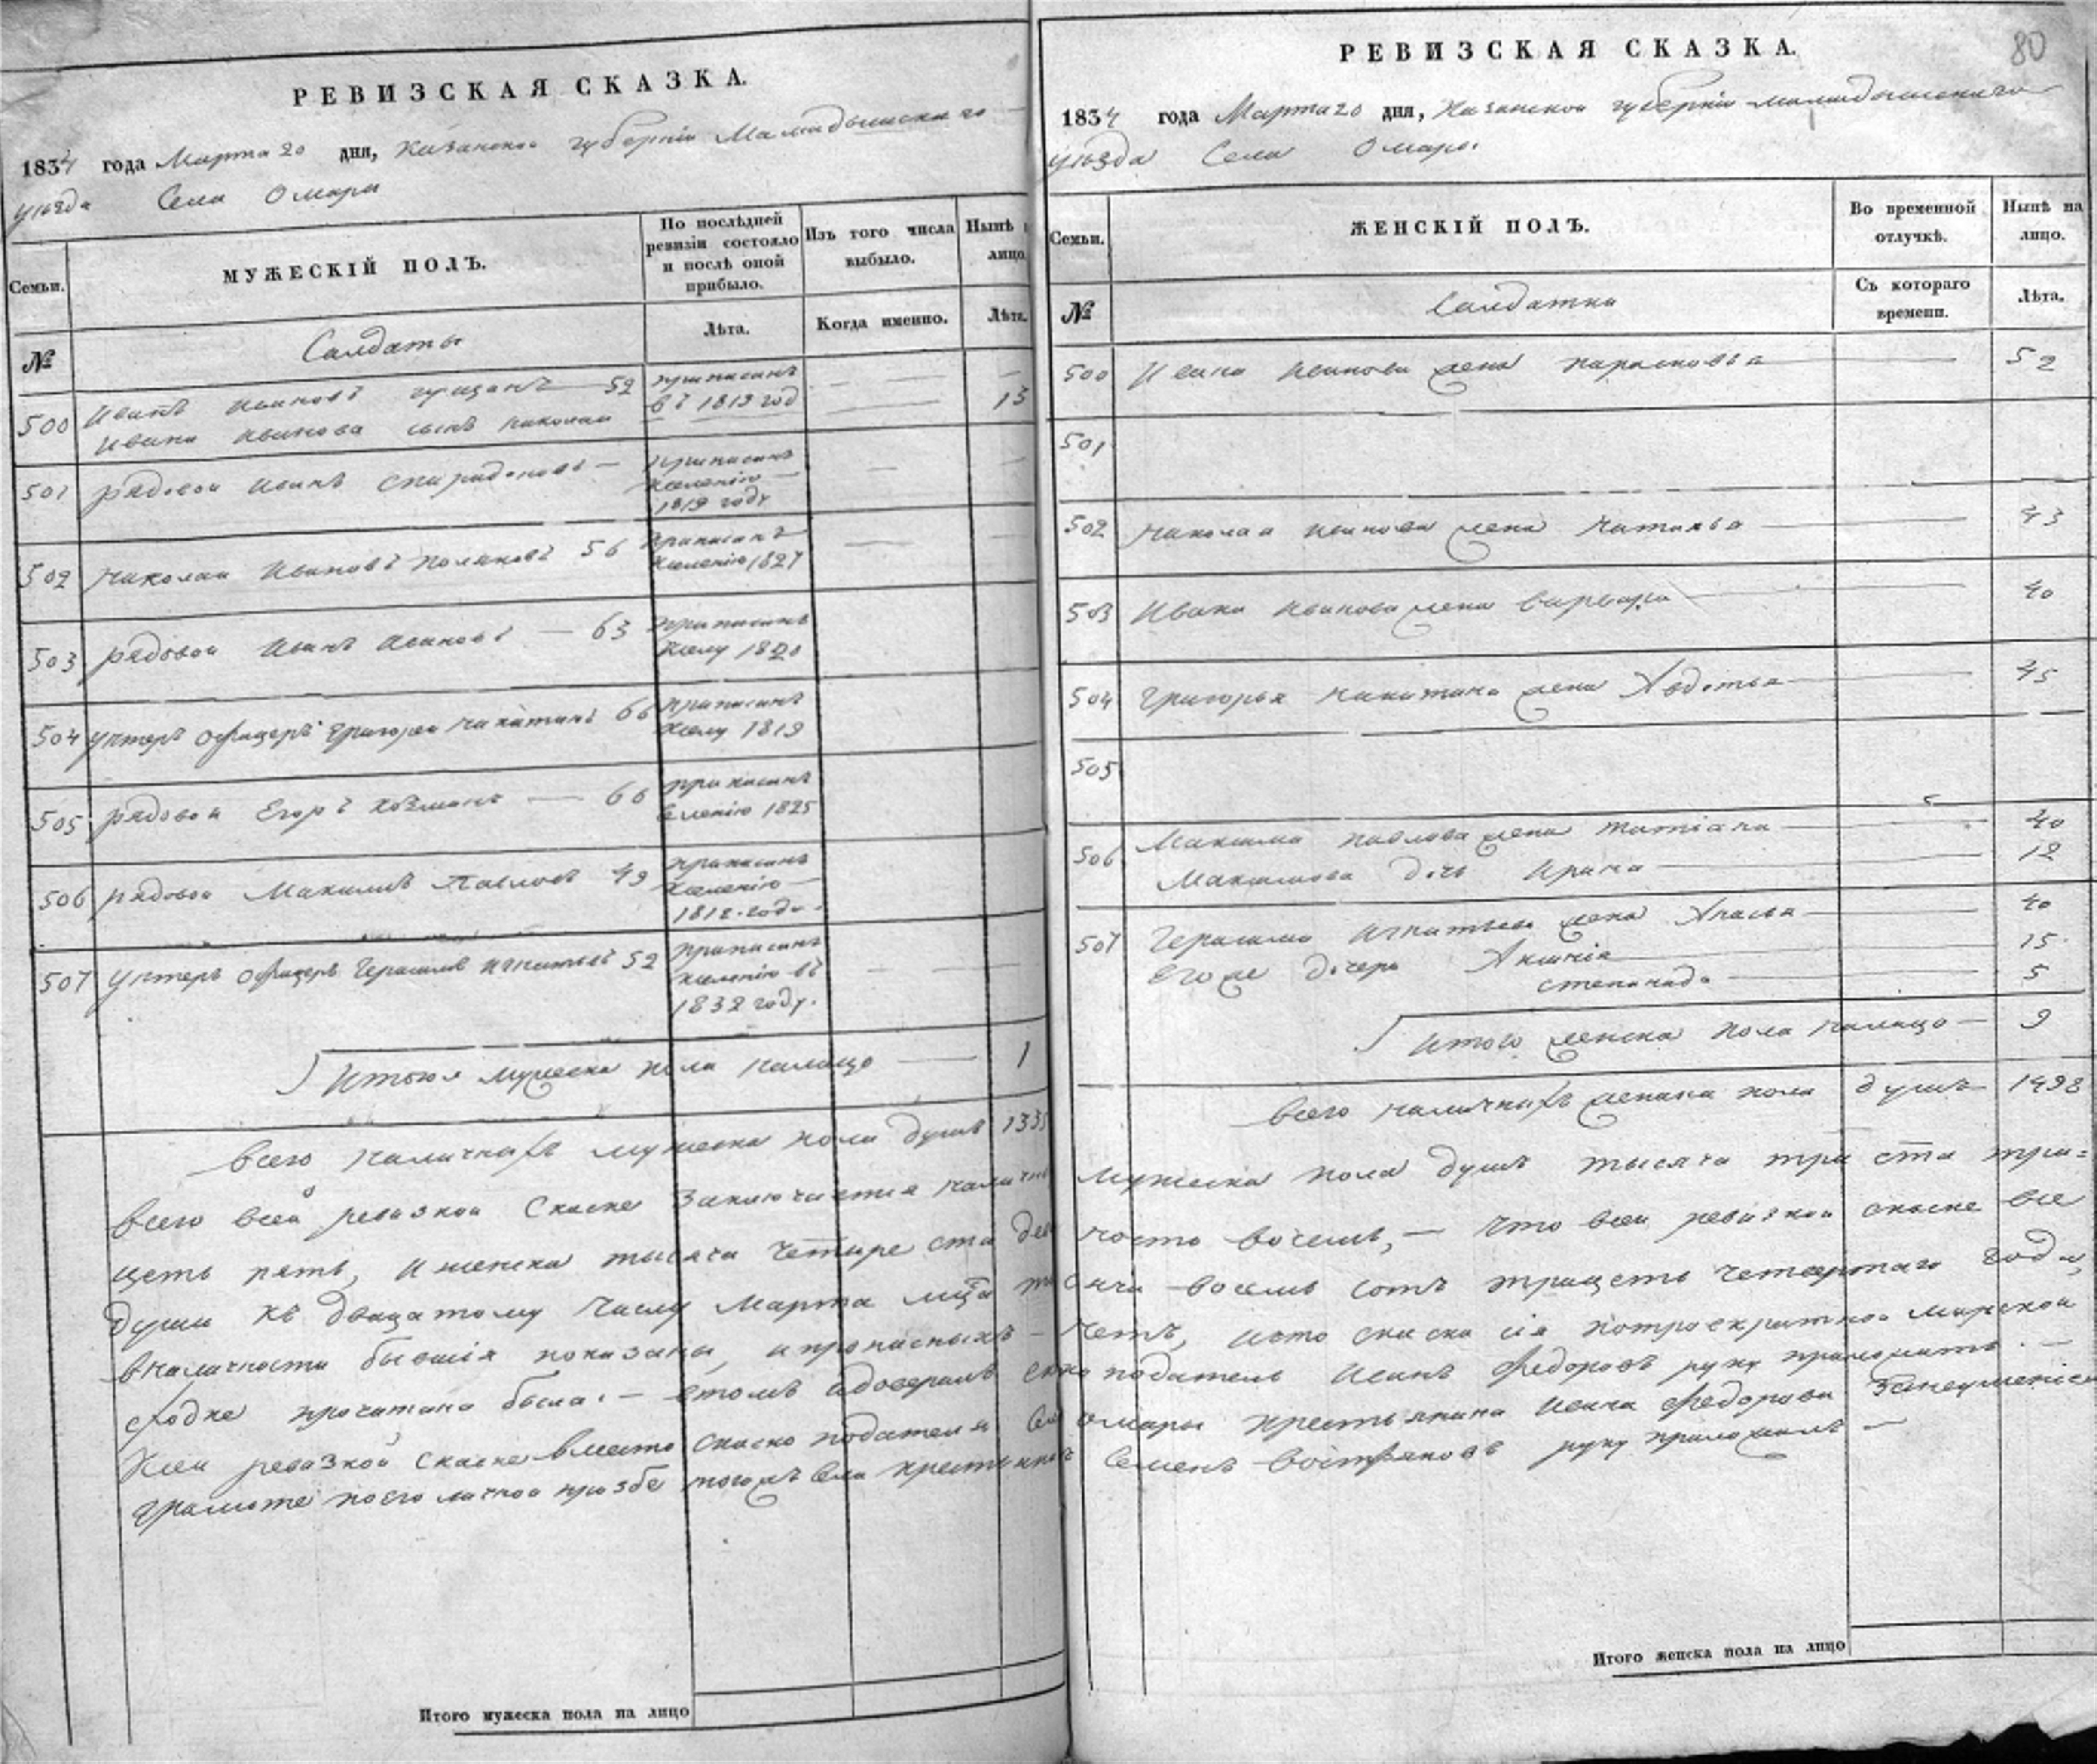 РЕВИЗСКАЯ СКАЗКА.
1834 года Марта 20 дня, Казанской губерніи Мамадышскаго
уѣзда Села Омары
Семьи.
МУЖЕСКІЙ ПОЛЪ.
По послѣдней ревизіи состояло и послѣ оной прибыло.
Изъ того числа выбыло.
Нынѣ лицо
№
Солдаты
Лѣта.
Когда именно.
Лѣта.
500 Иванъ Ивановъ 52 приписанъ въ 1813 год
Ивана Иванова сынъ Николай 13
501 рядовой Иванъ Спиридоновъ приписанъ 1819 году
502 Николай Ивановъ Поляковъ 56 приписанъ 1827
503 рядовой Иванъ Ивановъ 63 приписанъ 1820
504 унтеръ офицеръ Григорей Никитинъ 66 приписанъ 1819
505 рядовой Егоръ 66 приписанъ 1825
506 рядовой Максимъ Павловъ 49 приписанъ 1812 году
507 Унтеръ офицеръ Герасимъ Игнатьевъ 52 приписанъ въ 1832 году.
Итого мужеска пола налицо 1
всего наличныхъ мужеска пола душъ 133
всего всей ревизкой Скаске Заключается налич
цеть пять, и женска тысяча четыре ста дев
души къ двацатому числу Марта мца ты
вналичности бывшія показаны, ипрописныхъ
сходке прочитана была. – втомъ
ревизкой скаске вместо скаско подателя
грамоте поего личной прозбе тогожъ села крестьянинъ
Итого мужеска пола на лицо
80
РЕВИЗСКАЯ СКАЗКА.
1834 года Марта 20 дня, Казанской губерніи Мамадышскаго
уѣзда Села Омары.
Семьи.
ЖЕНСКІЙ ПОЛЪ.
Во временной отлучкѣ.
Нынѣ на лицо.
№
Солдатки
Съ котораго времени.
Лѣта.
500 Ивана Иванова жена Парасковья 52
501
502 Николая Иванова жена Наталья 43
503 Ивана Иванова жена Варвара 40
504 Григорья Никитина жена Авдотья 45
505
506 Максима Павлова жена Татіана 40
Максимова дочь Ирина 12
507 Герасима Игнатьева жена 40
Егоже дочери 15
Степанида 5
Итого женска пола налицо 9
всего наличныхъ женска пола душъ 1498
мужеска пола душъ тысяча три ста три=
носто восемь, – что всей ревизкой скаске все
сячи восемь сотъ трицеть четвертаго года,
нетъ, ито скаска сія мирской
податель Иванъ Федоровъ руку
омары крестьянина Ивана Федорова
Семенъ Востряковъ руку приложилъ
Итого женска пола на лицо